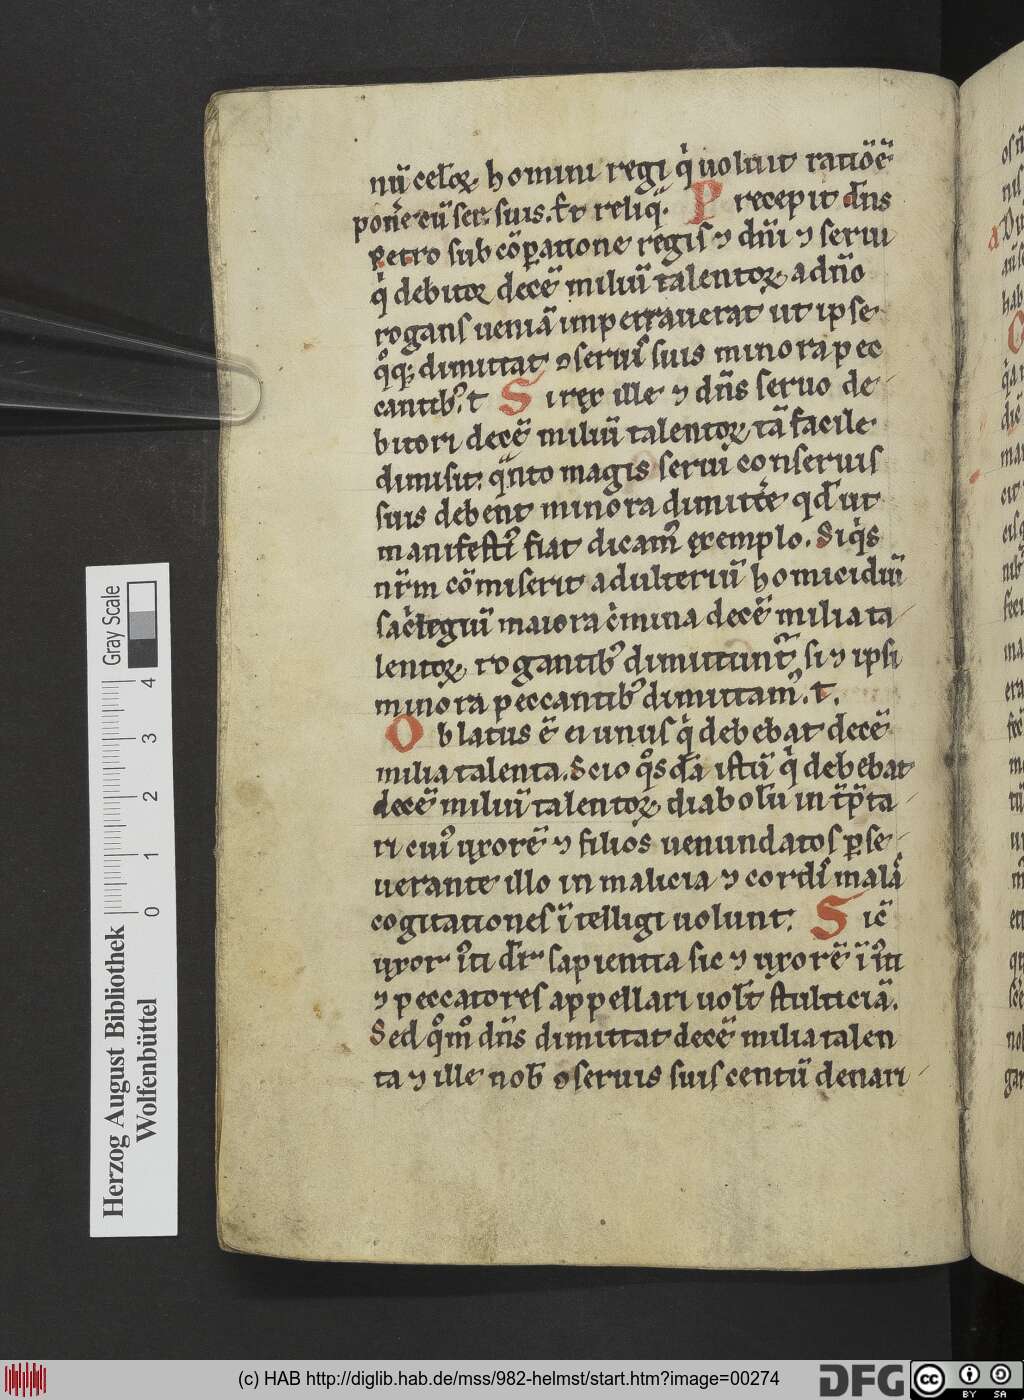 nū celoꝝ homini regi q̇ uoluit ratiōē
poñe cū ser. suis. Et reliq̄. Precepit dn̄s
Petro sub cōꝑatione regis ⁊ dn̄i ⁊ serui
q̇ debitor decē miliū talentoꝝ a dn̄o
rogans ueniā impetrauerat ut ipse
q̊q; dimittat ꝯseruis suis minora pec
cantibꝰ. t Si rex ille ⁊ dn̄s seruo de
bitori decē miliū talentoꝝ tā facile
dimisit: qnto magis serui conseruis
suis debent minora dimitt̄e qd̄ ut
manifestiꝰ fiat dicamꝰ exemplo. Siq̇s
nr̄m cōmiserit adulteriū homicidiū
sac̍legiū maiora c̍mina decē milia ta
lentoꝝ rogantibꝰ dimittunt̄ si ⁊ ipsi
minora peccantibꝰ dimittamꝰ. t.
Oblatus ē ei unus q̇ debebat decē
milia talenta. Scio q̊sdā istū q̇ debebat
decē miliū talentoꝝ diabolū int̄p̄ta
ri cuiꝰ uxorē ⁊ filios uenundatos ꝑse
uerante illo in malicia ⁊ cordis malas
cogitationes ītelligi uolunt. Sic̄
uxor iusti dr̄ sapientia sic ⁊ uxorē īiusti
⁊ peccatores appellari uolt̄ stulticiā.
Sed q̊m̊ dn̄s dimittat decē milia talen
ta ⁊ ille nob̄ ꝯseruis suis centū denari
Gray Scale
0 1 2 3 4
Herzog August Bibliothek
Wolfenbüttel
(c) HAB http://diglib.hab.de/mss/982-helmst/start.htm?image=00274
DFG
cc BY SA